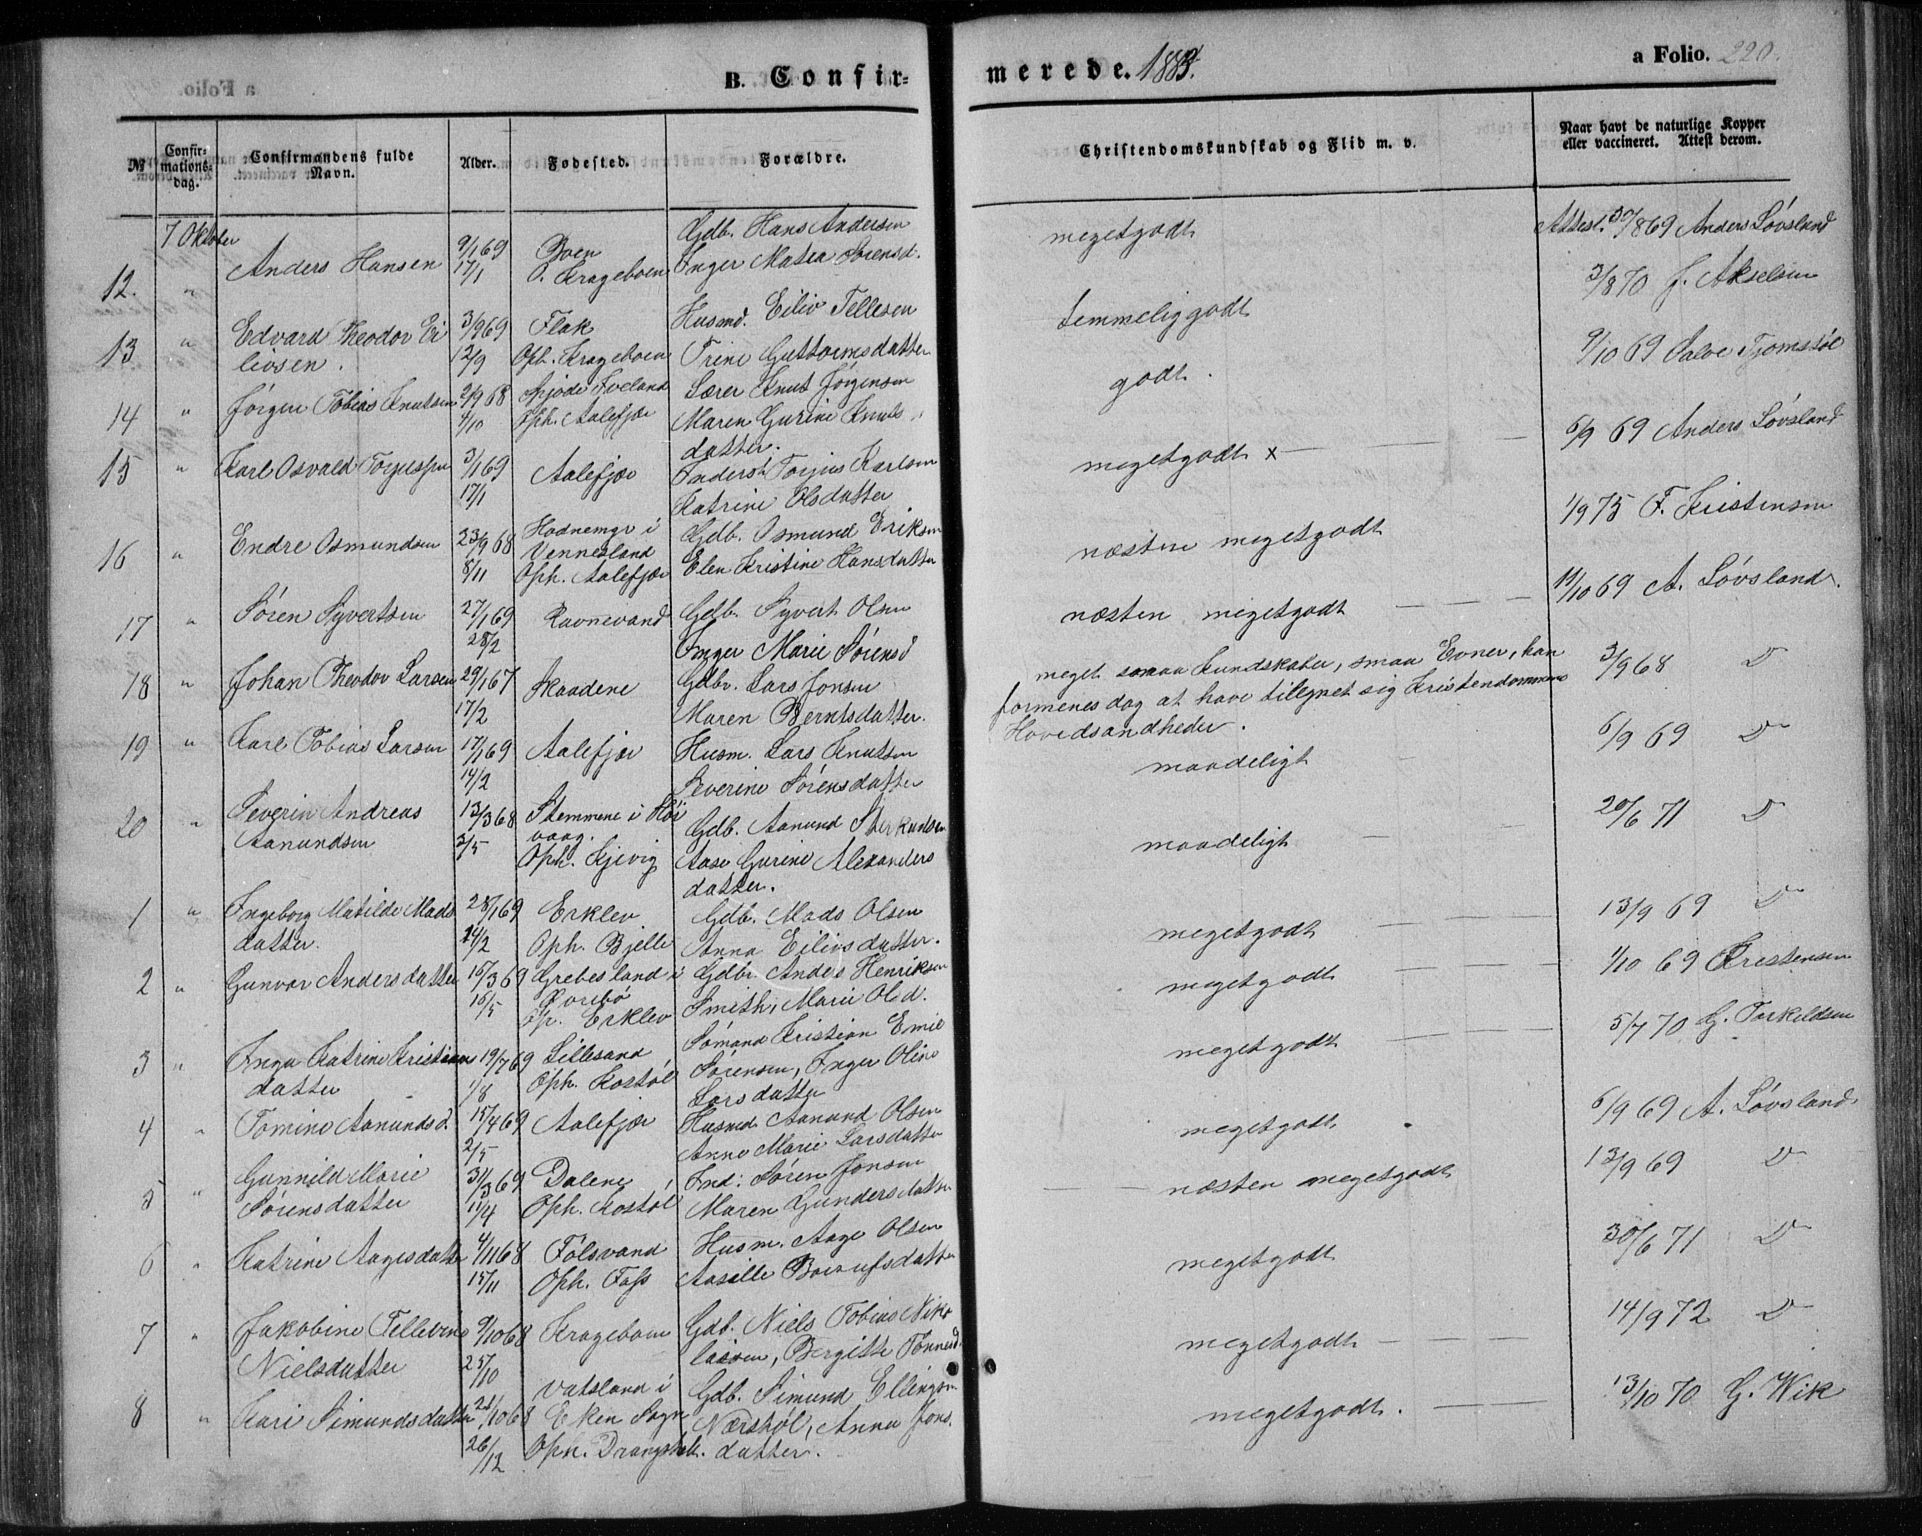 a Folio.
B. Confir-
merede. 1883.
a Folio. 220.
№
Confir-
mations-
dag.
Confirmandens fulde
Navn.
Alder.
Fødested.
Forældre.
Christendomskundskab og Flid m. v.
Naar havt de naturlige Kopper
eller vaccineret. Attest derom.
7 Oktober
12. " Anders Hansen 9/1 69 17/1 Boen O. Krageboen Gdb. Hans Andersen
Inger Matea Sørensd. megetgodt Attest. 30/8 69 Anders Løvsland
13 " Edvard Theodor Ei 3/9 69 Flak Husmd. Eiliv Tellesen temmelig godt 3/8 70 J. Akselsen
livsen. 12/9 Oph. Krageboen Trine Guttormsdatter
14 " Jørgen Tobias Knutsen 2/9 68 Lærer Knut Jørgensen godt. 9/10 69 Salve Tjomstøl
4/10 Oph. Aalefjær Maren Gurine Knuts
datter.
15 " Karl Osvald Torjussen 3/1 69 Aalefjær Inderst Torjus Karlsen megetgodt x 6/9 69 Anders Løvsland
17/1 Katrine Olsdatter
16 " Endre Osmundsen 23/9 68 Hodnemyr i Gdb. Osmund Eriksen næsten megetgodt 1/9 75 F. Kristensen
Vennesland
8/11 Oph. Aalefjær Elen Kristine Hansdatter
17 " Søren Syvertsen 27/1 69 Ravnevand Gdb. Syvert Olsen næsten megetgodt 11/10 69 A. Løvsland.
28/2 Inger Marie Sørensd
18 " Johan Theodor Larsen 29/1 67 Skaadene Gdbr. Lars Jonsen meget smaa Kundskaber, smaa Evner, kan 3/9 68 D
17/2 Maren Berntsdatter. formenes dog at have tilegnet sig Kristendommens
Hovedsandheder.
19 " Karl Tobias Larsen 17/1 69 Aalefjær Husm. Lars Knutsen maadeligt 6/9 69 D
14/2 Severine Sørensdatter
20 " Severin Andreas 13/3 68 Stemmene i Høi Gdb. Aanund Sterkundsen maadeligt 20/6 71 D
Aanundsen 3/5 vaag.
Oph. Kjevig Aase Gurine Alexanders
datter.
1 " Ingeborg Matilde Mads 28/1 69 Erklev Gdb. Mads Olsen megetgodt 13/9 69 D
datter. 14/2 Oph. Bjelle Anna Eilivsdatter.
2 " Gunvor Andersdatter 16/3 69 Grebesland i Gdbr. Anders Henriksen megetgodt 1/10 69 Kristensen
16/5 Øvrebø
Op. Erklev Smith, Marie Olsd.
3 " Inga Katrine Kristians 19/7 69 Lillesand Sømand Kristian Emil megetgodt 5/7 70 G. Terkeldsen
datter 1/8 Oph. Kostøl Sørensen, Inger Oline
Larsdatter
4 " Tomine Aanundsd. 15/4 69 Aalefjær Husmd Aanund Olsen megetgodt 6/9 69 A. Løvsland.
2/5 Anne Marie Larsdatter
5 " Gunnild Marie 31/3 69 Dalene Ind: Søren Jonsen næsten megetgodt 13/9 69 D
Sørensdatter 11/4 Oph. Kostøl Maren Gundersdatter
6 " Katrine Aagesdatter 4/11 68 Følsvand Husm. Aage Olsen megetgodt 30/6 71 D
15/11 Oph. Foss Aasille Boiufsdatter
7 " Jakobine Tellevine 9/10 68 Krageboen Gdb. Niels Tobias Niko megetgodt 14/9 72 D
Nielsdatter 25/10 laisen, Bergitte Tønnesd.
8 " Kari Simundsdatter 21/10 68 Vatsland i Gdb. Simund Ellingsen megetgodt. 13/10 70 G. Wik
Eken Sogn, Nærstøl, Anna Jons
26/12 Oph. Drangsholt. datter.